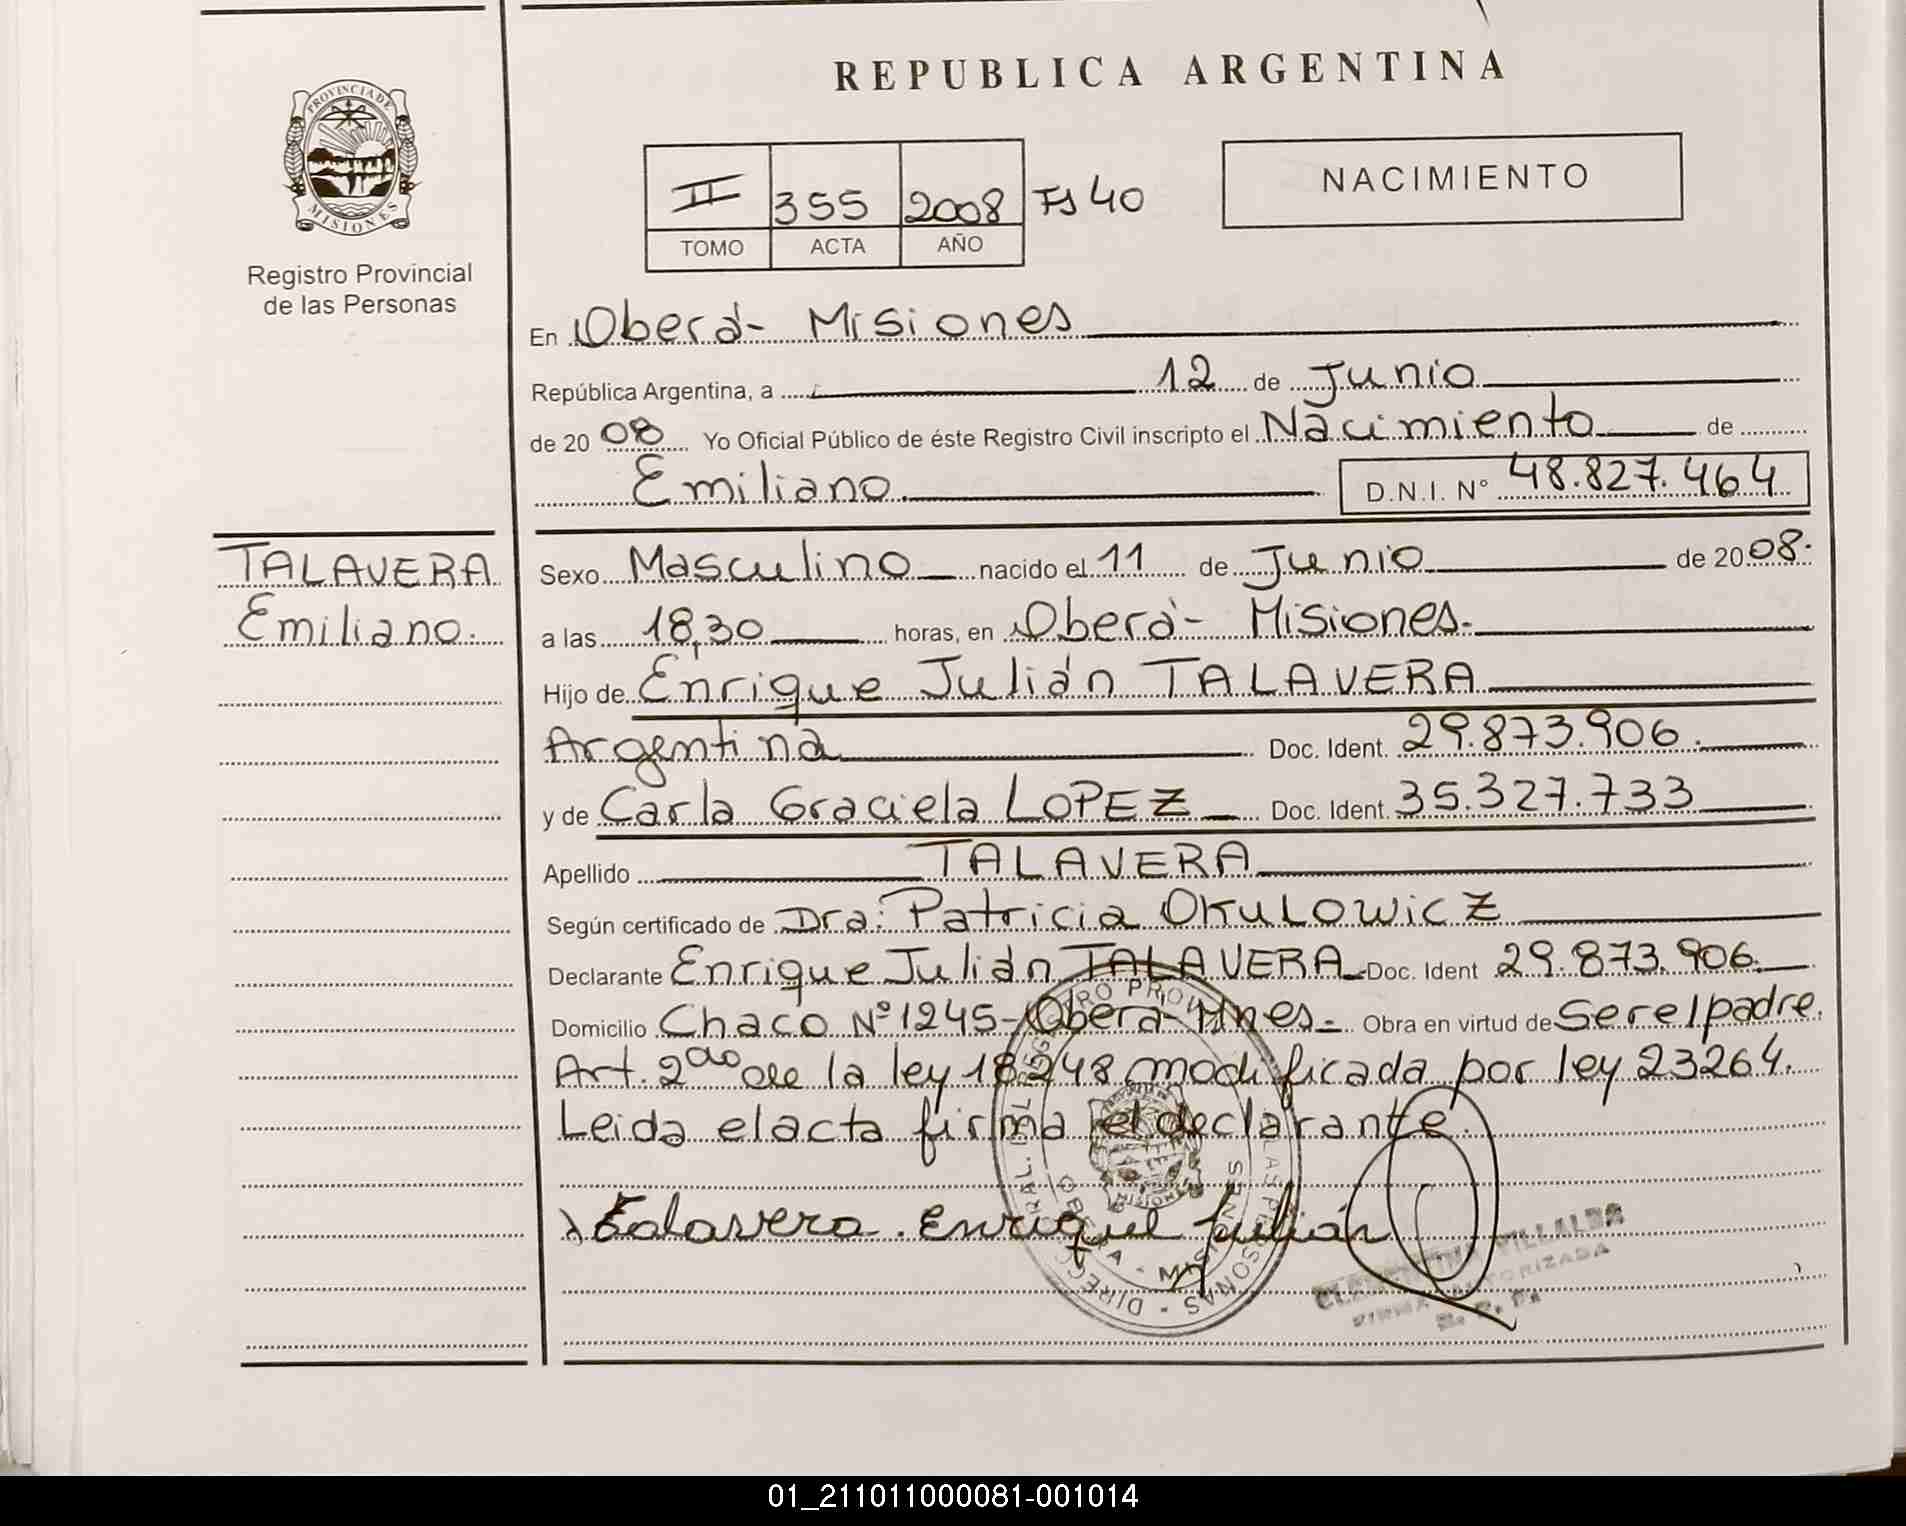 REPUBLICA ARGENTINA
PROVINCIA DE MISIONES
Registro Provincial
de las Personas
II 355 2008 Fs 40
TOMO ACTA AÑO
NACIMIENTO
En Oberá - Misiones
República Argentina, a 12 de Junio
de 20 08 Yo Oficial Público de éste Registro Civil inscripto el Nacimiento de
Emiliano D.N.I. N° 48.827.464
TALAVERA
Emiliano.
Sexo Masculino nacido el 11 de Junio de 20 08.
a las 18,30 horas, en Oberá - Misiones.
Hijo de Enrique Julián TALAVERA
Argentina Doc. Ident. 29.873.906.
y de Carla Graciela LOPEZ Doc. Ident. 35.327.733
Apellido TALAVERA
Según certificado de Dra: Patricia OKULOWICZ
Declarante Enrique Julián TALAVERA Doc. Ident 29.873.906.
Domicilio Chaco Nº 1245 - Oberá - Mnes. Obra en virtud de Ser el padre.
Art. 2do de la ley 18248 modificada por ley 23264.
Leida el acta firma el declarante.
Talavera. Enrique Julián
OBERA - MISIONES
VILLALBA
FIRMA AUTORIZADA
01_211011000081-001014